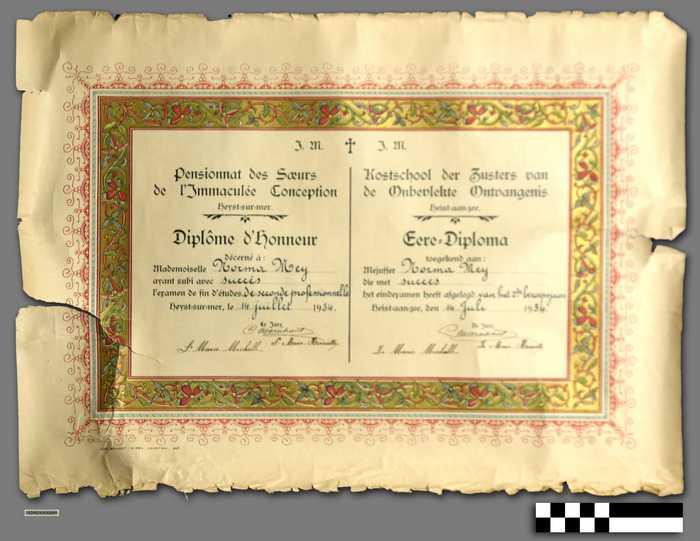 J. M. † J. M.
Pensionnat des Sœurs
de l'Immaculée Conception
Heyst-sur-mer.
Diplôme d'Honneur
décerné à :
Mademoiselle Norma Mey
ayant subi avec succès
l'examen de fin d'études, de seconde professionnelle
Heyst-sur-mer, le 14 juillet 1934.
Le Jury,
Sr Marie Mechtilde Sr Marie Henriette
Kostschool der Zusters van
de Onbevlekte Ontvangenis
Heist-aan-zee.
Eere-Diploma
toegekend aan :
Mejuffer Norma Mey
die met succes
het eindexamen heeft afgelegd van het 2de beroepsjaar
Heist-aan-zee, den 14 Juli 1934.
De Jury,
Zr Marie Zr Marie